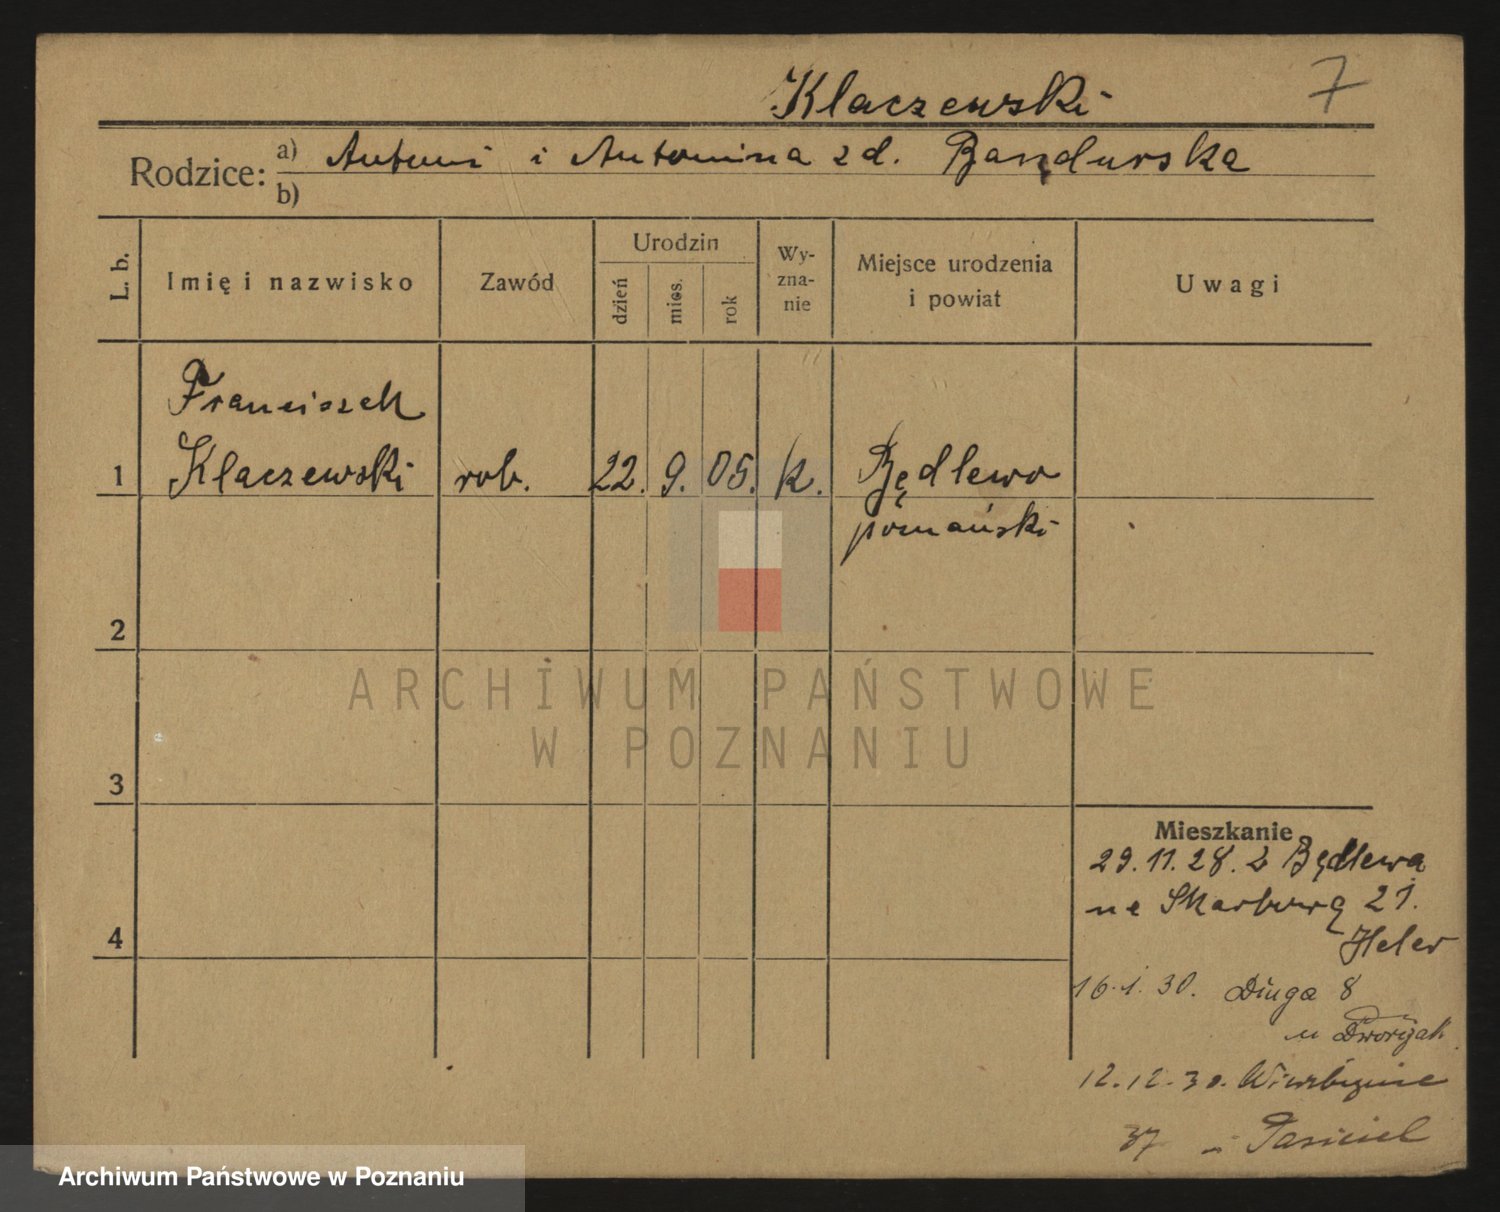 Klaczewski 7
Rodzice: a) Antoni i Antonina zd. Bandurska
b)
L. b. Imię i nazwisko Zawód Urodzin dzień mies. rok Wyznanie Miejsce urodzenia i powiat Uwagi
Franciszek
1 Klaczewski rob. 22. 9. 05. k. Będlewo
poznański
2
ARCHIWUM PAŃSTWOWE
W POZNANIU
3
Mieszkanie
29.11.28. z Będlewa
na Skarbową 21.
Heler
4
16.1.30. Długa 8
u Dworżak
12.12.30. Wierzbięcice
37 u
Archiwum Państwowe w Poznaniu